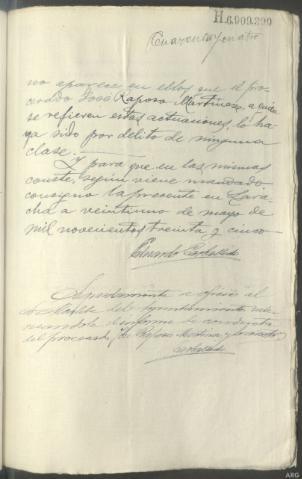 H.6.909.290
Cuarenta y cuatro
no aparece en ellos que el pro-
cesado José Raposo Martínez, a que
se refieren estas actuaciones, lo ha-
ya sido por delito de ninguna
clase.
Y para que en las mismas
conste, según viene mandado
consigno la presente en Cara
cha a veintiuno de mayo de
mil novecientos treinta y cinco
Eduardo
Seguidamente se ofició al
Alcalde del Ayuntamiento
informe de conducta
del procesado José Raposo
ARG